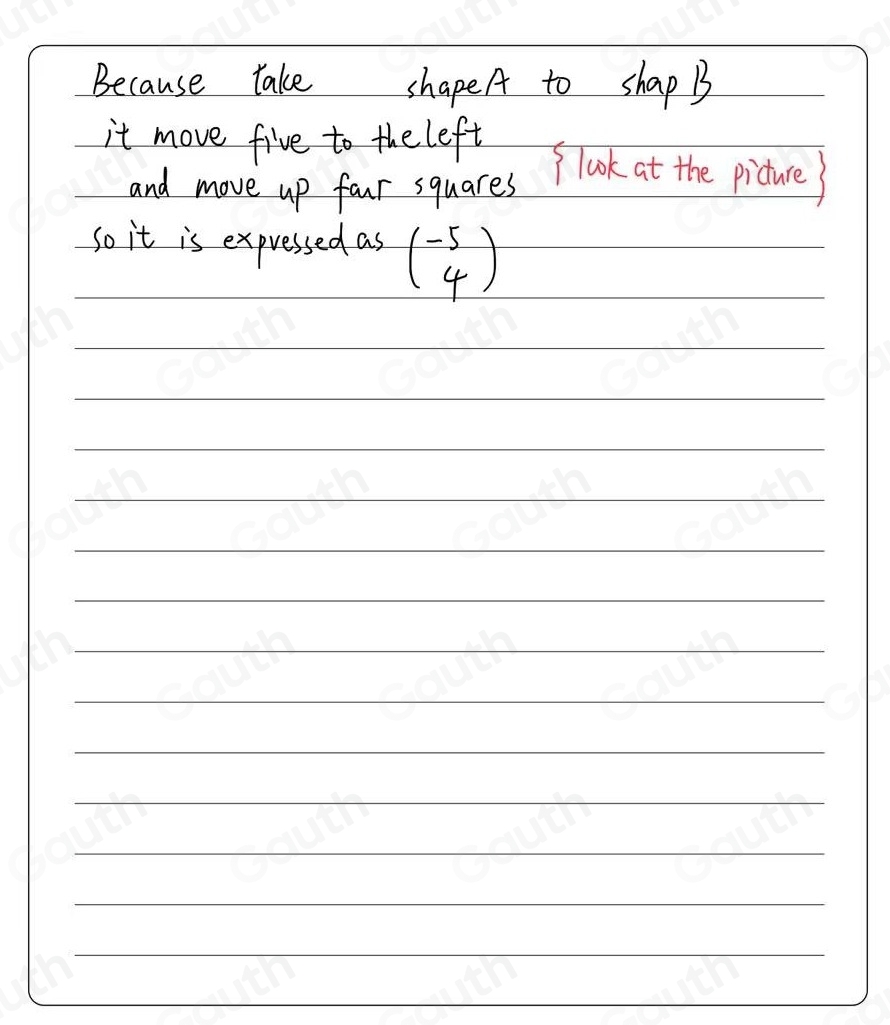 Because take shape A to shap B
it move five to the left
and move up four squares {look at the picture}
so it is expressed as (-5
4)